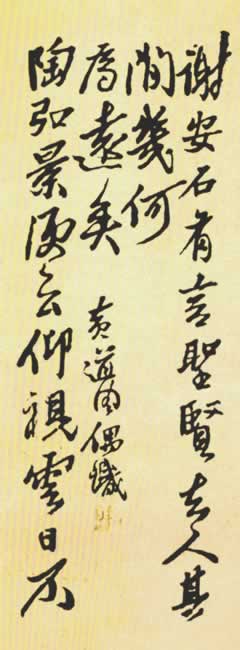 謝安石有言聖賢去人其
間幾何
陶弘景便云仰視雲日不
為遠矣
黃道周偶識